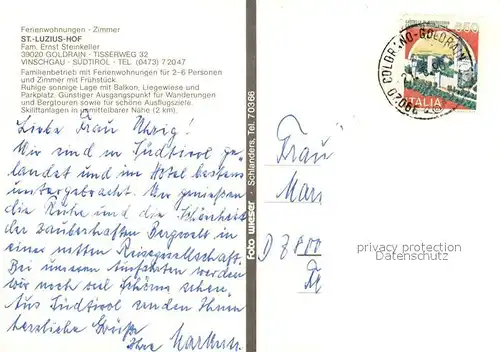 Ferienwohnungen - Zimmer
ST.-LUZIUS-HOF
Fam. Ernst Steinkeller
39020 GOLDRAIN - TISSERWEG 32
VINSCHGAU - SÜDTIROL - TEL. (0473) 72047
Familienbetrieb mit Ferienwohnungen für 2-6 Personen
und Zimmer mit Frühstück.
Ruhige sonnige Lage mit Balkon, Liegewiese und
Parkplatz. Günstiger Ausgangspunkt für Wanderungen
und Bergtouren sowie für schöne Ausflugsziele.
Skiliftanlagen in unmittelbarer Nähe (2 km).
Liebe Frau Uhrig!
Wir sind in Südtirol ge-
landet und im Hotel bestens
untergebracht. Wir genießen
die Ruhe und die Schönheit
der zauberhaften Bergwelt in
einer netten Reisegesellschaft.
Bei unseren Ausfahrten werden
wir noch viel Schönes sehen.
Aus Südtirol senden Ihnen
herzliche Grüße
Ihre
foto wieser - Schlanders, Tel. 70366
650
ITALIA
39020 COLDRANO-GOLDRAIN
Frau
Mar
D 7800
privacy protection
Datenschutz